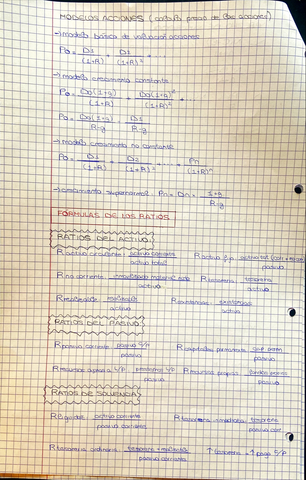 MODELOS ACCIONES (
→ modelo básico de valoración acciones
P₀ = D₁/(1+R) + D₂/(1+R)² + ...
→ modelo crecimiento constante
P₀ = D₀(1+g)/(1+R) + D₀(1+g)²/(1+R)² + ...
P₀ = D₀(1+g)/R-g = D₁/R-g
→ modelo crecimiento no constante
P₀ = D₁/(1+R) + D₂/(1+R)² + .... + Pn/(1+R)ⁿ
→ crecimiento supernormal: Pn = Dn · 1+g/R-g
FÓRMULAS DE LOS RATIOS
RATIOS DEL ACTIVO:
R activo corriente: activo corriente/activo total
R activo f.p: activo total/pasivo
R no corriente: inmovilizado material/activo
R tesorería: tesorería/activo
R realizable: realizable/activo
R existencias: existencias/activo
RATIOS DEL PASIVO
R pasivo corriente: pasivo c/p/pasivo
R capitales permanentes:
R recursos ajenos c/p: c/p/pasivo
R recursos propios: fondos propios/pasivo
RATIOS DE SOLVENCIA
R liquidez: activo corriente/pasivo corriente
R tesorería inmediata: tesorería/pasivo cor.
R tesorería ordinaria: tesorería + realizable/pasivo corriente
↑ tesorería = ↑ pago c/p